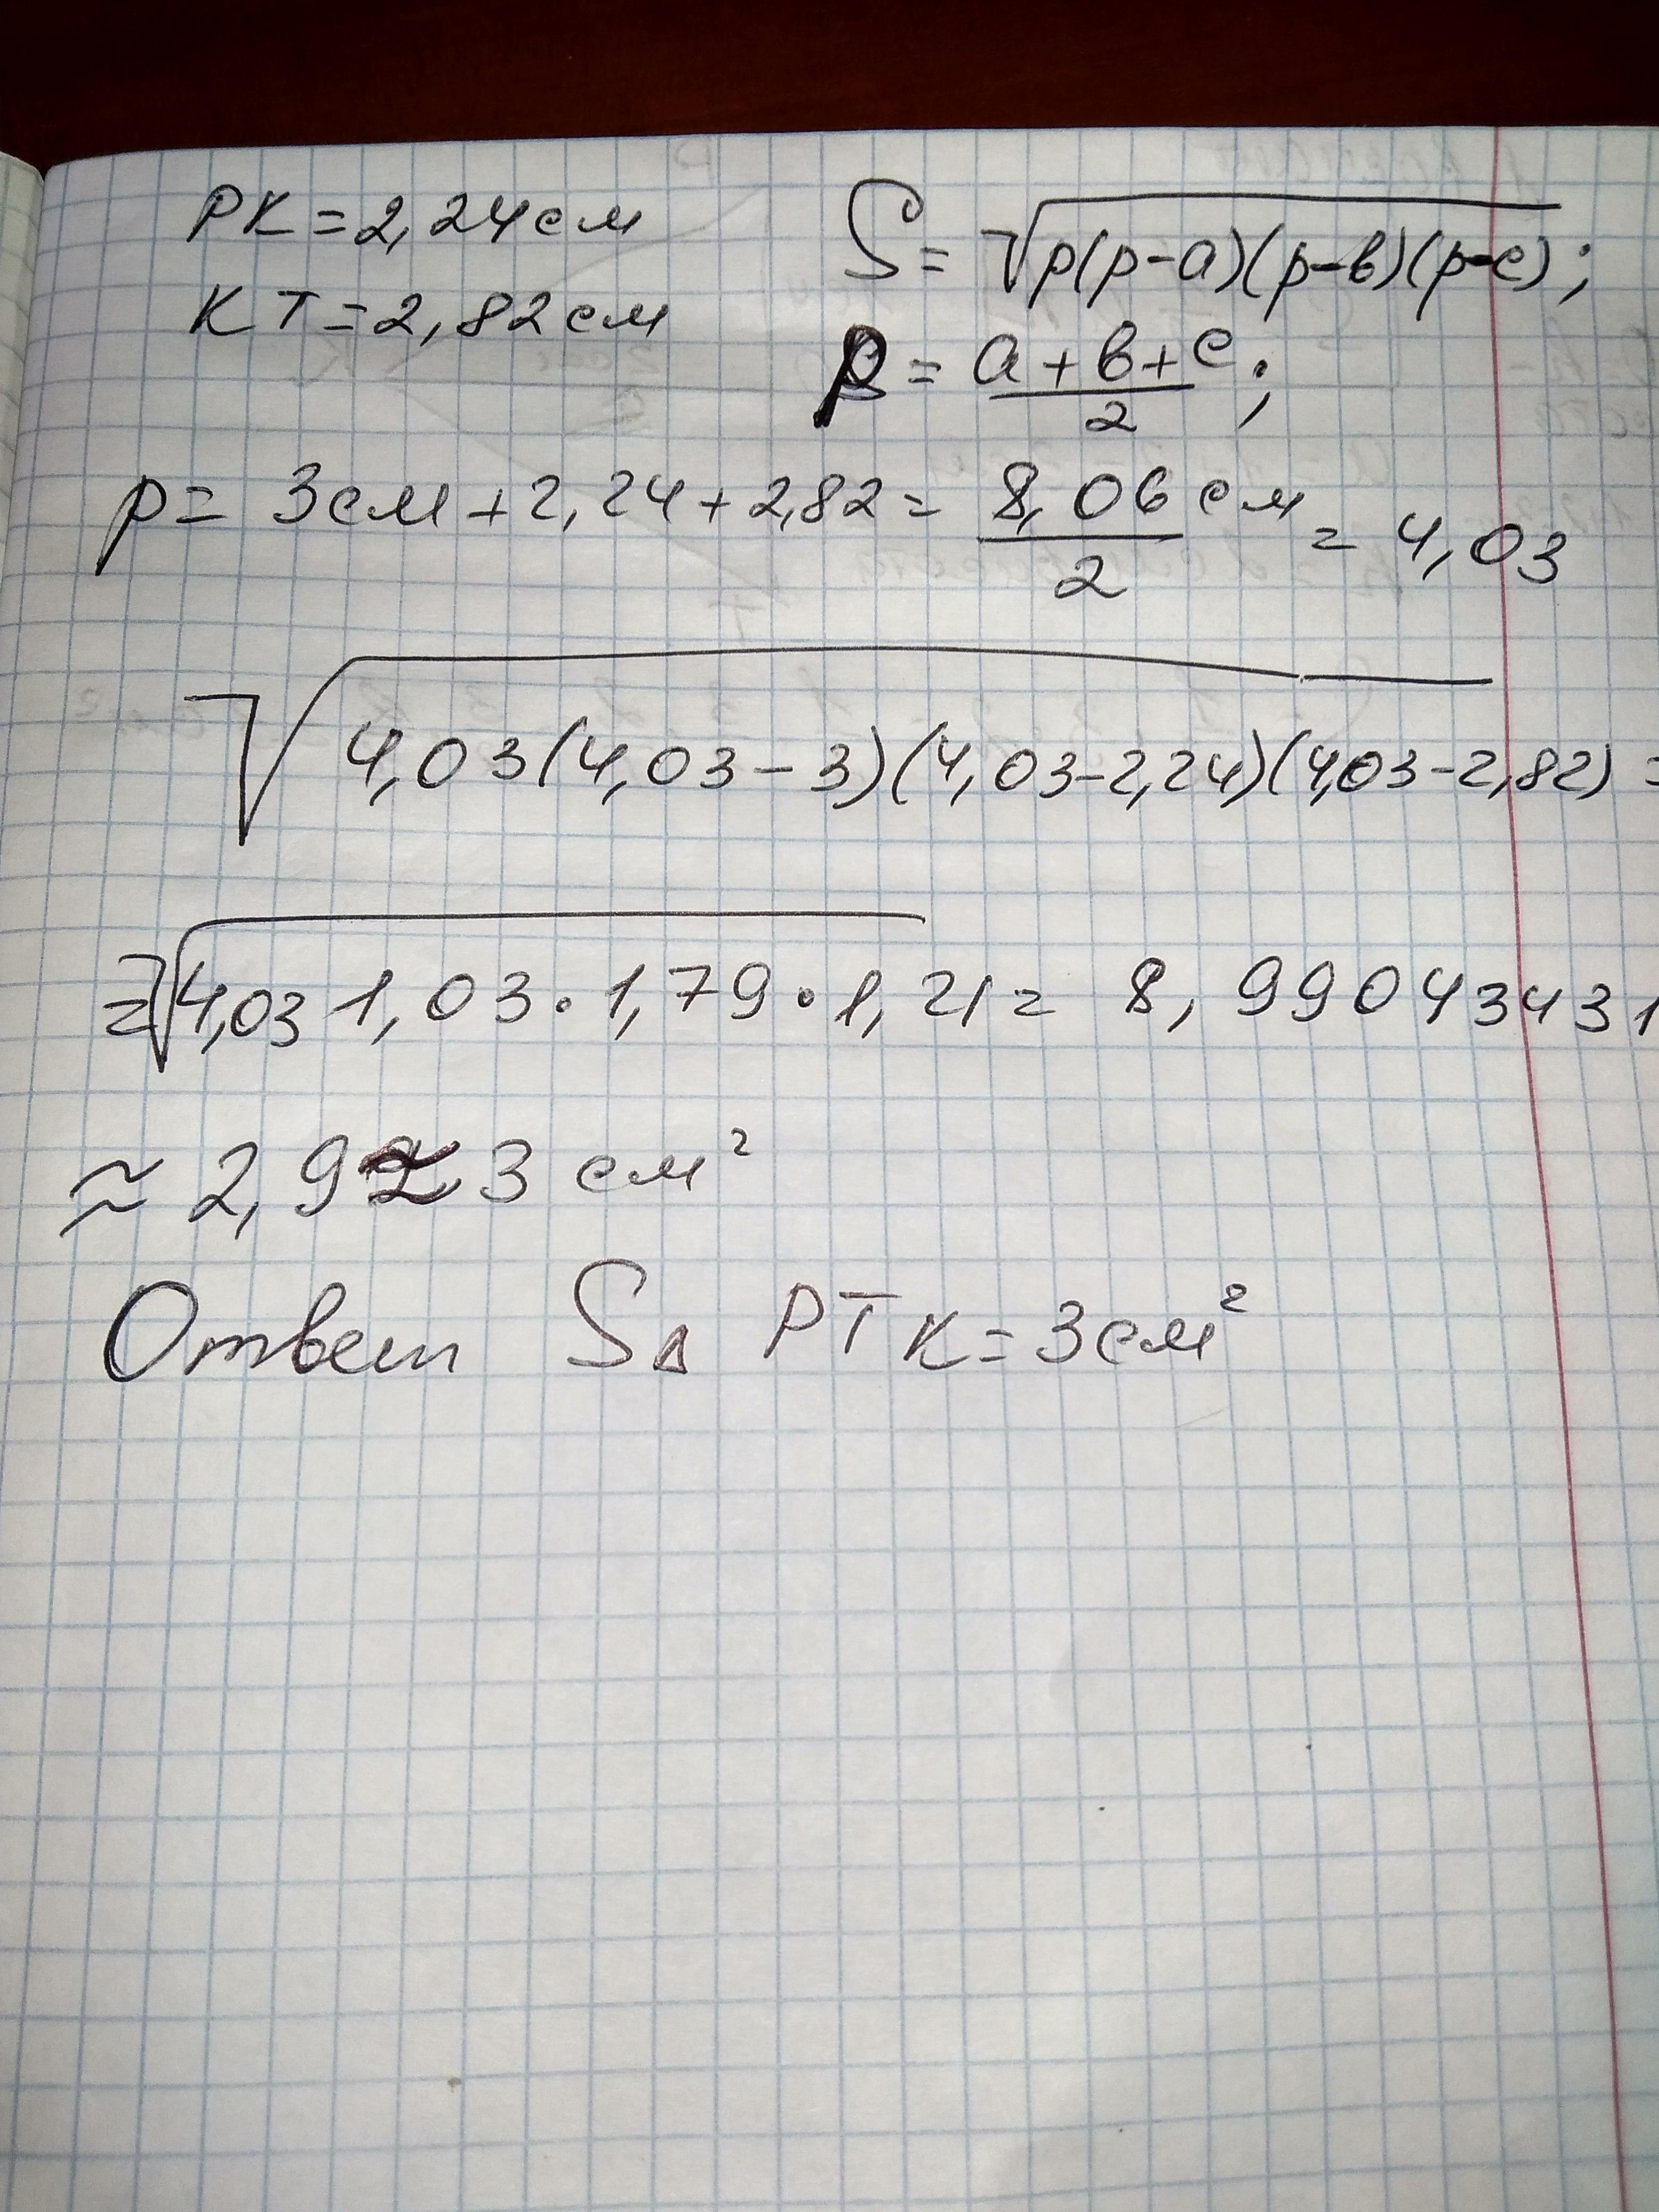 PK = 2,24 см
KT = 2,82 см
S = √p(p-a)(p-b)(p-c);
p = a+b+c/2;
p = 3см + 2,24 + 2,82 = 8,06 см/2 = 4,03
√4,03(4,03-3)(4,03-2,24)(4,03-2,82) =
= √4,03 1,03 · 1,79 · 1,21 = 8,99043431
≈ 2,9 ≈ 3 см²
Ответ S△ PTK = 3см²